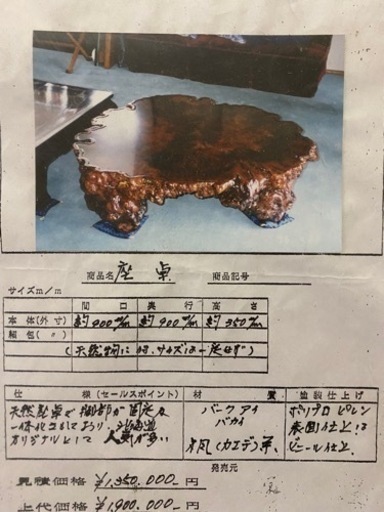 商品名 座卓 商品記号
サイズm/m
間口 奥行 高さ
本体(外寸) 約900m/m 約900m/m 約350m/m
梱包( 〃 )
(天然物に付、サイズは一定せず)
仕様(セールスポイント) 材質 塗装仕上げ
天然座卓で脚部が固定 バークアイ ポリプロピレン
一体化しており、北海道 バカイ 表国仕上は
オリジナルとして人気が多い 楓(カエデ)等、 ビニール仕上、
発売元
見積価格 ¥1,350,000-円
上代価格 ¥1,900,000-円